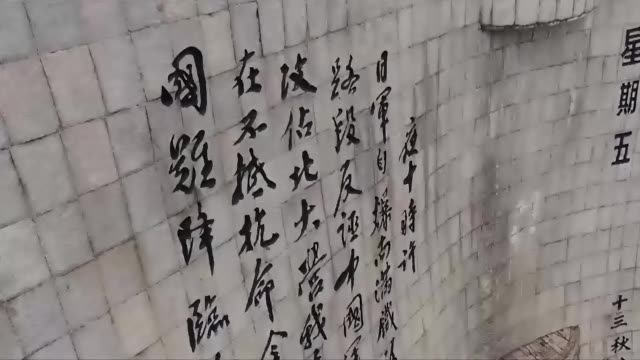 星期五
十三秋
夜十時許
日軍自爆南滿鐵
路段反誣中國軍
攻佔北大營我
在不抵抗命令
國難降臨